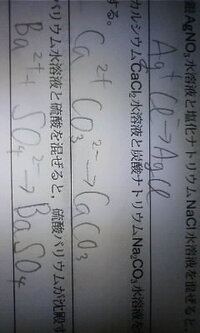 銀AgNO₃水溶液と塩化ナトリウムNaCl水溶液を混ぜると、
Ag⁺ Cl⁻→AgCl
カルシウムCaCl₂水溶液と炭酸ナトリウムNa₂CO₃水溶液を
する。
Ca²⁺ CO₃²⁻→CaCO₃
バリウム水溶液と硫酸を混ぜると、硫酸バリウムが沈殿す
Ba²⁺+ SO₄²⁻→BaSO₄